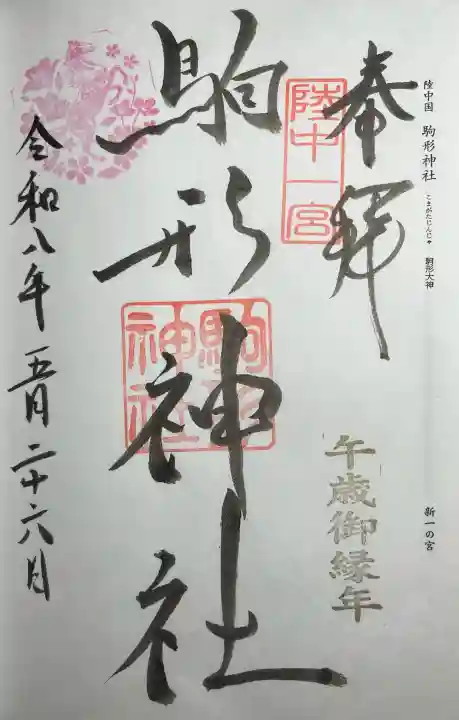 陸中国 駒形神社 こまがたじんじゃ 駒形大神 新一の宮
奉拝
陸中一宮
午歳御縁年
駒形神社
駒形神社
令和八年五月二十六日